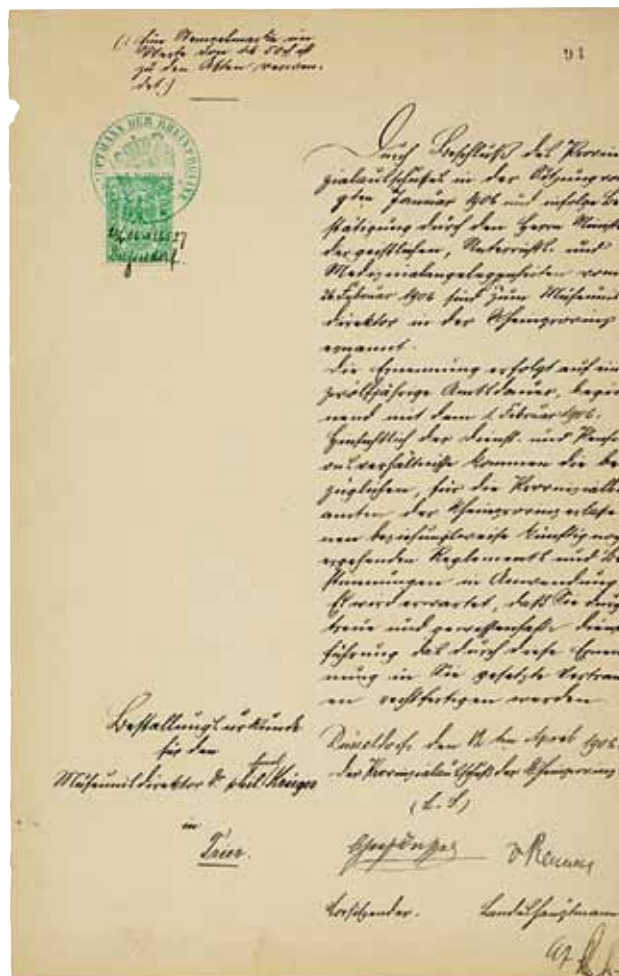 (: Eine Stempelmarke im
Werte von M. 1,50 ist
zu den Akten verwen-
det.)
91
HAUPTMANN DER RHEINPROVINZ
Durch Beschluß des Provin
zialausschusses in der Sitzung vom
9ten Januar 1906 und infolge Be
stätigung durch den Herrn Minist
der geistlichen, Unterrichts- und
Medizinalangelegenheiten vom
26 Februar 1906 sind zum Museums
direktor in der Rheinprovinz
ernannt.
Die Ernennung erfolgt auf ein
zwölfjährige Amtsdauer, begin
nend mit dem 1. Februar 1906.
Hinsichtlich der Dienst- und Pensi
onsverhältnisse kommen die be
züglichen, für die Provinzialbe
amten der Rheinprovinz erlasse
nen beziehungsweise künftig noch
ergehenden Reglements und Be
stimmungen in Anwendung
Es wird erwartet, daß Sie durch
treue und gewissenhafte Dienst
führung das durch diese Ernen
nung in Sie gesetzte Vertrau
en rechtfertigen werden
Düsseldorf, den 12 ten April 1906.
der Provinzialausschuß der Rheinprovinz
(L. S.)
Bestallungsurkunde
für den
Museumsdirektor Dr. phil. Krüger
in
Trier.
v Renvers
Vorsitzender. Landeshauptmann